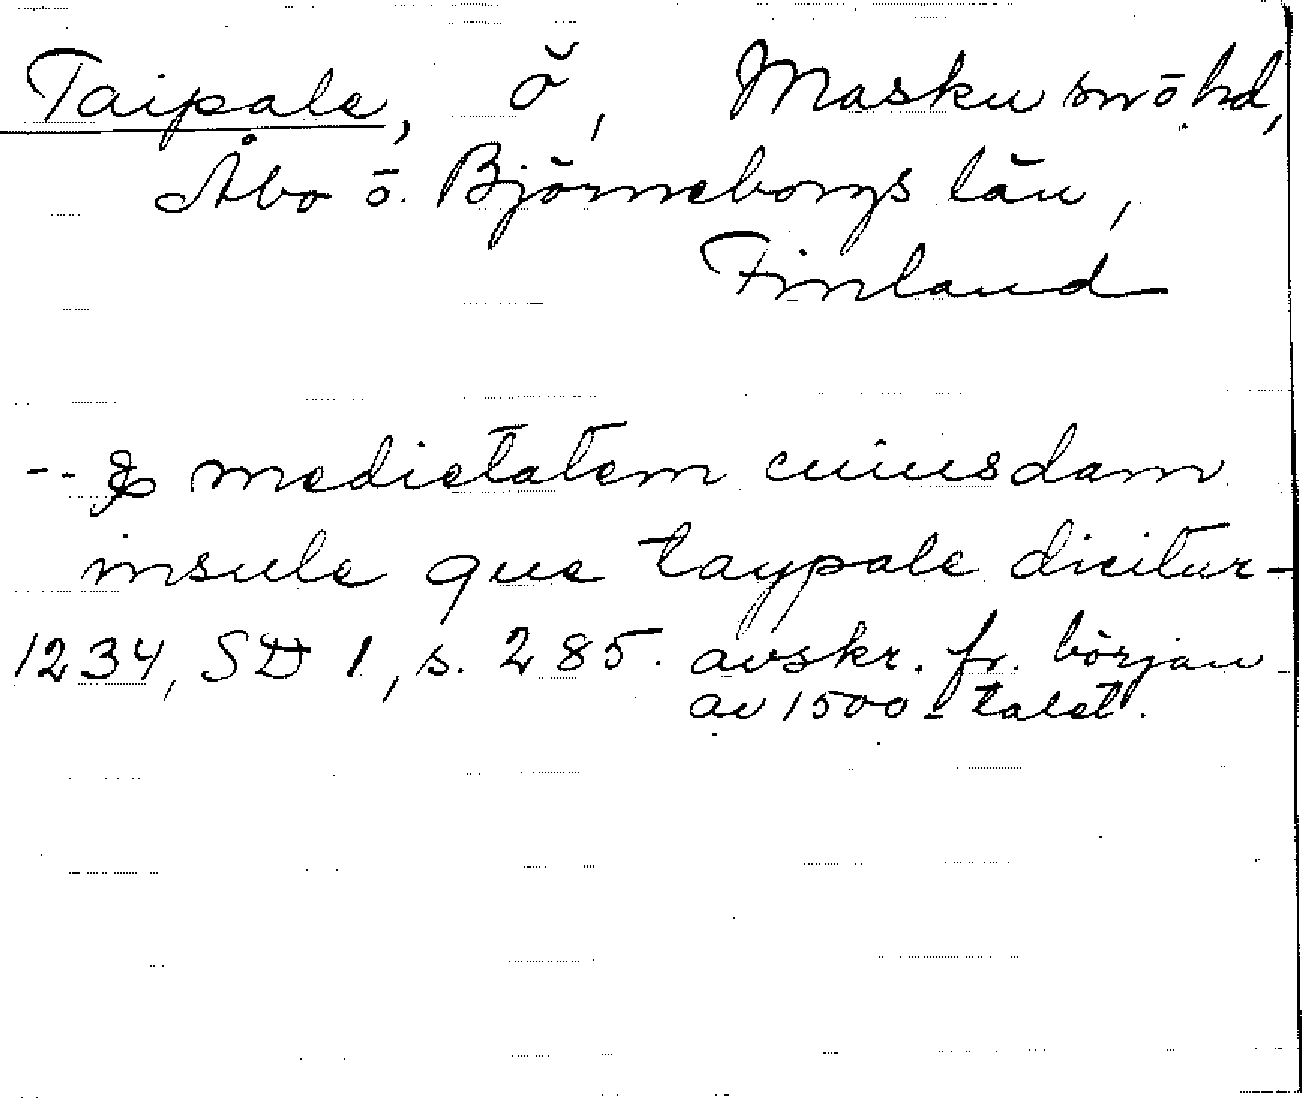 Taipale, ö, Masku snöhd,
Åbo o. Björneborgs län,
Finland
-- & medietatem cuiusdam
insule que taypale dicitur -
1234, SD 1, s. 285. avskr. fr. början
av 1500-talet.